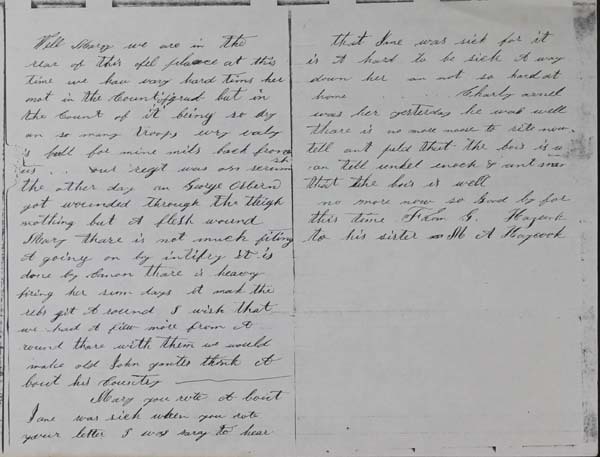 Well Mary we are in the
rear of this ofel plaace at this
time we hav vary hard tims her
not in the Count of grub but in
the Count of it being so dry
an so many troops evry valy
is full for nine mils back from
us . . our regt was on scrimish
the other day an George Osborn
got wounded through the thigh
nothing but A flesh wound
Mary thare is not much fiting
A going on by intifry it is
done by Canon thare is heavy
firing her sum days it mak the
rebs git A round I wish that
we had A fiew more from A
round thare with them we would
make old John think A
bout his Country
Mary you rote A bout
Jane was sick when you rote
your letter I was sarry to hear
that Jane was sick for it
is A hard to be sick A way
down her an not so hard at
home . . . . . Charly
was her yesterday he was well
thare is no more noose to rite now
tell ant that the bois is w
an tell unkel enock & ant
that the bois is well
no more now so Good by for
this time From G. Haycock
to his sister M A Haycock